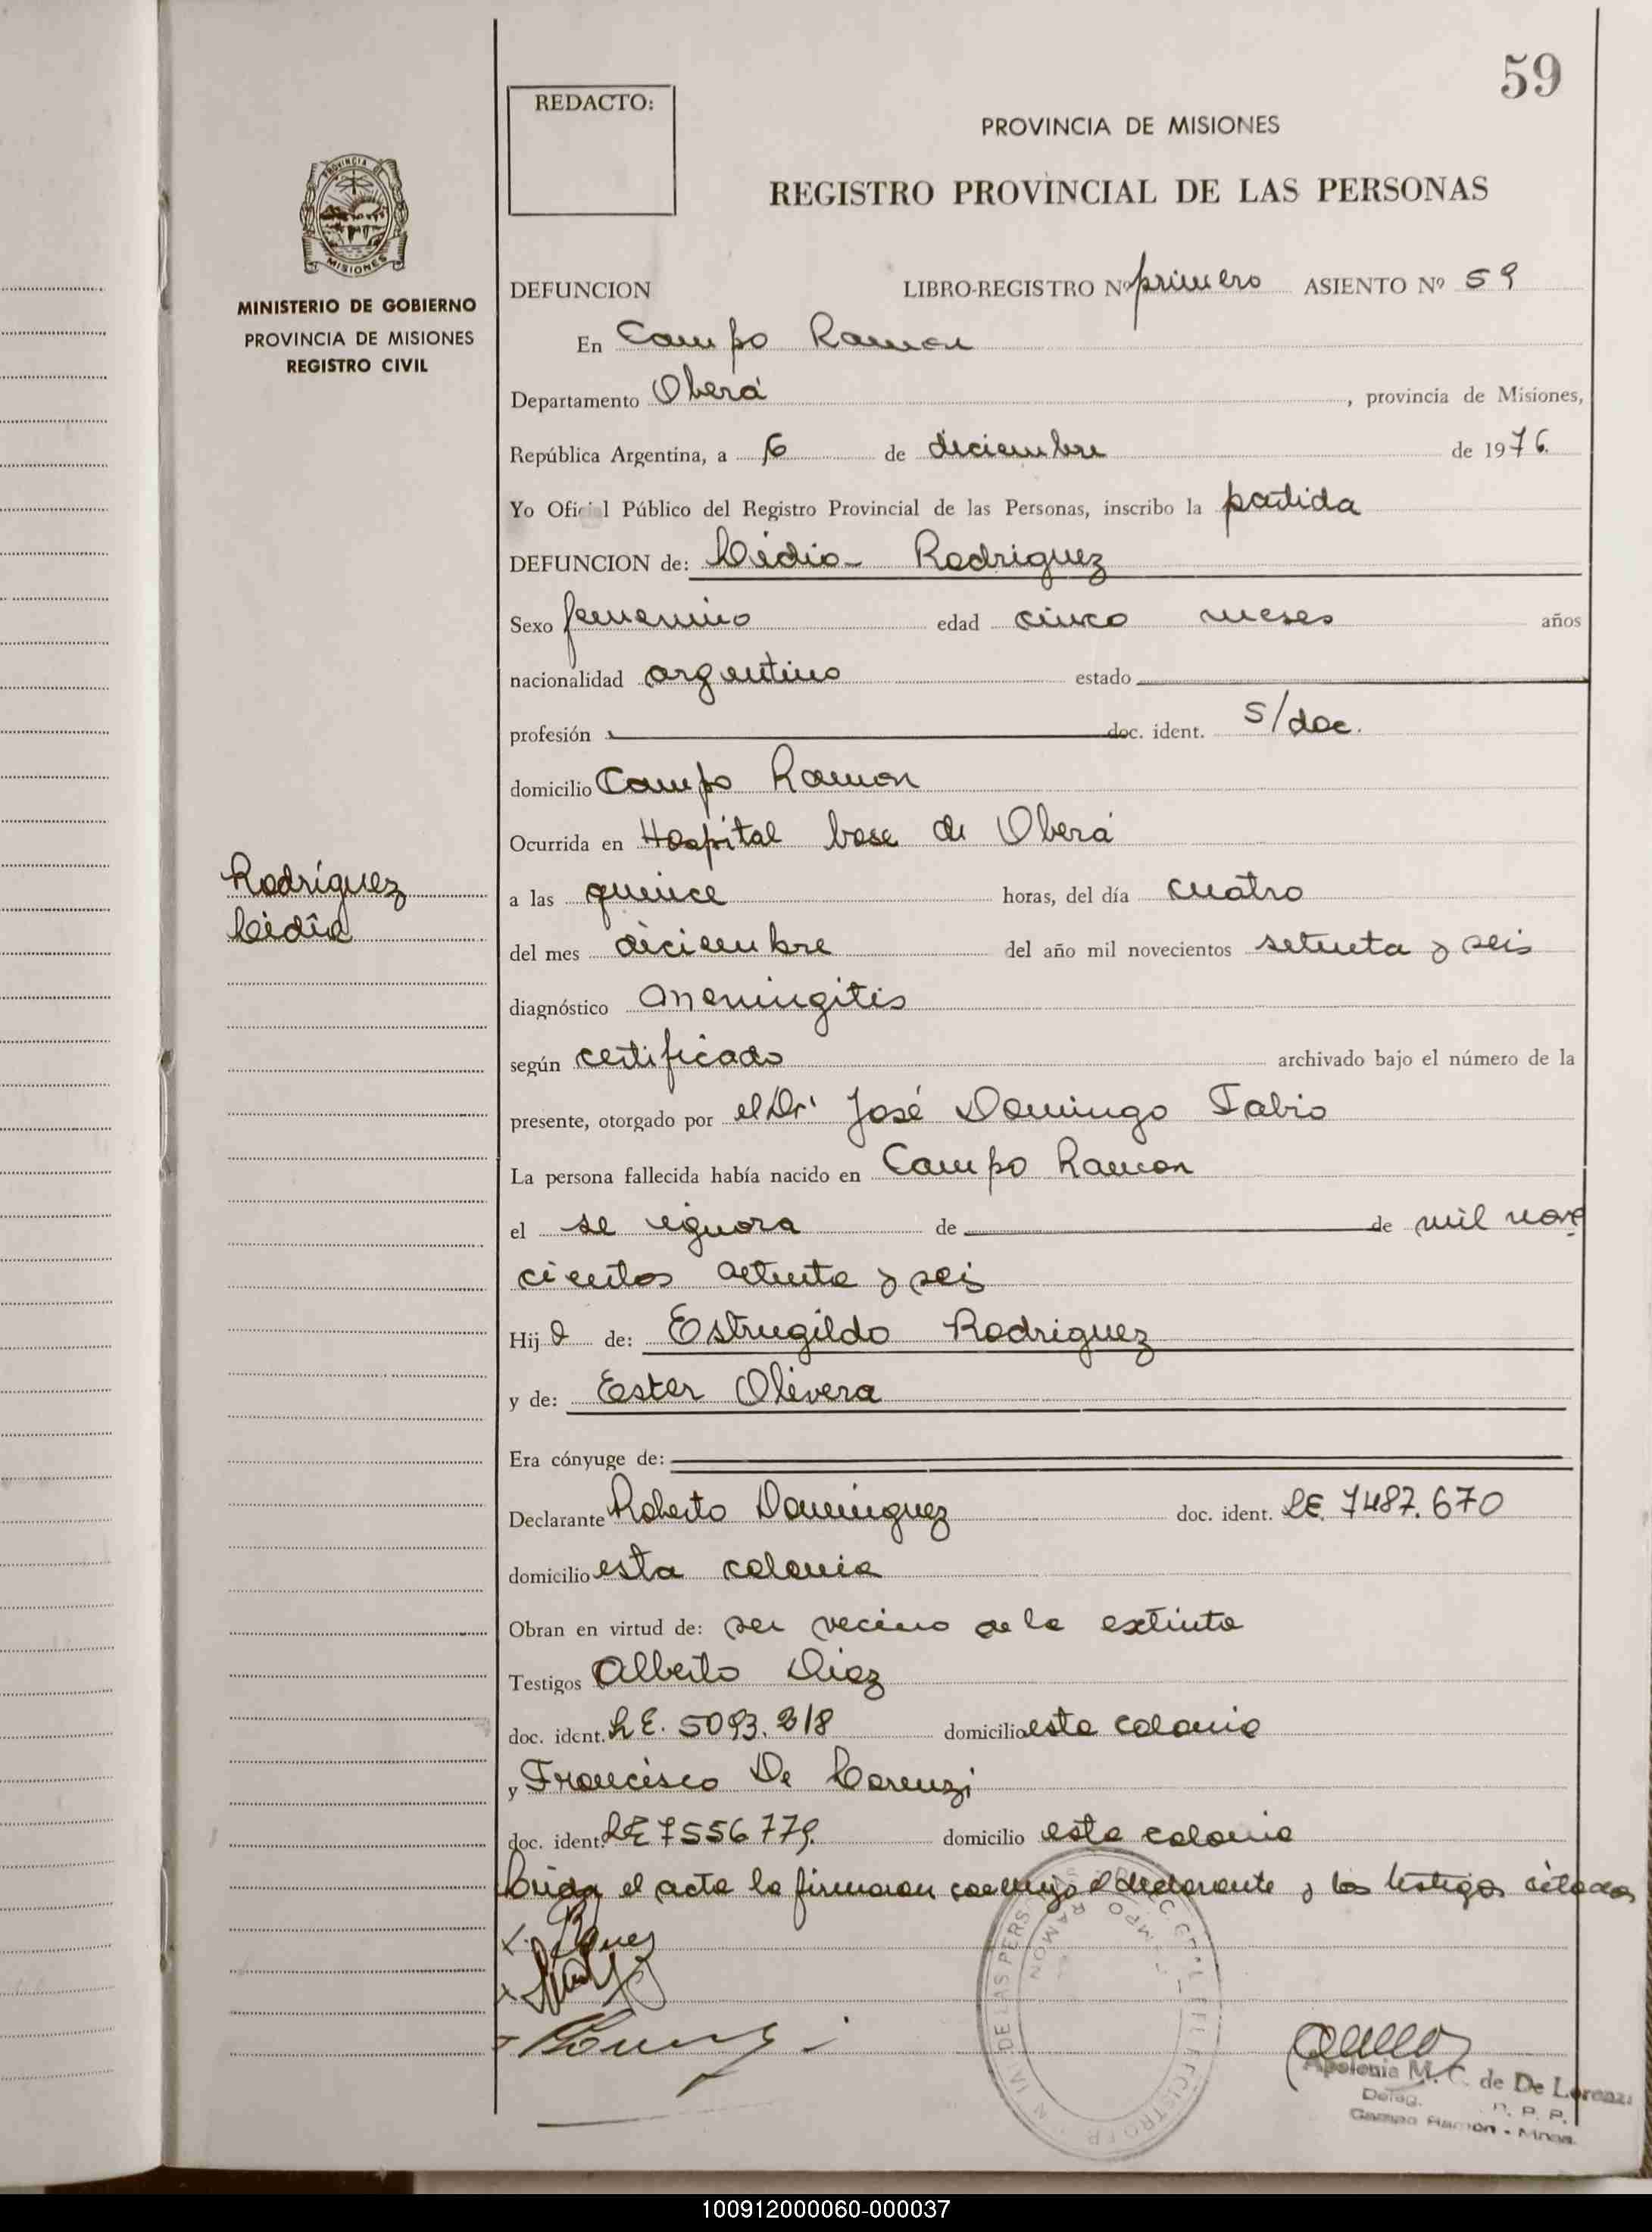 59
REDACTO:
PROVINCIA DE MISIONES
REGISTRO PROVINCIAL DE LAS PERSONAS
PROVINCIA DE
MISIONES
MINISTERIO DE GOBIERNO
PROVINCIA DE MISIONES
REGISTRO CIVIL
DEFUNCION LIBRO-REGISTRO Nº primero ASIENTO Nº 59
En Campo Ramon
Departamento Oberá, provincia de Misiones,
República Argentina, a 6 de diciembre de 1976.
Yo Oficial Público del Registro Provincial de las Personas, inscribo la partida
DEFUNCION de: Lidia Rodriguez
Sexo femenino edad cinco meses años
nacionalidad argentino estado
profesión doc. ident. s/doc.
domicilio Campo Ramon
Ocurrida en Hospital base de Oberá
Rodríguez
Lidia
a las quince horas, del día cuatro
del mes diciembre del año mil novecientos setenta y seis
diagnóstico Meningitis
según certificado archivado bajo el número de la
presente, otorgado por el Dr. José Domingo Fabio
La persona fallecida había nacido en Campo Ramon
el se ignora de de mil nove
cientos setenta y seis
Hija de: Estrugildo Rodriguez
y de: Ester Olivera
Era cónyuge de:
Declarante Roberto Dominguez doc. ident. LE. 7487.670
domicilio esta colonia
Obran en virtud de: ser vecino de la extinta
Testigos Alberto Diaz
doc. ident. LE. 5093.218 domicilio esta colonia
y Francisco De Lorenzi
doc. ident. LE 7556779. domicilio esta colonia
Leida el acta la firmaron conmigo el declarante y los testigos citados
Apolonia M. C. de De Lorenzi
Deleg. R. P. P.
Campo Ramón - Mnes.
100912000060-000037